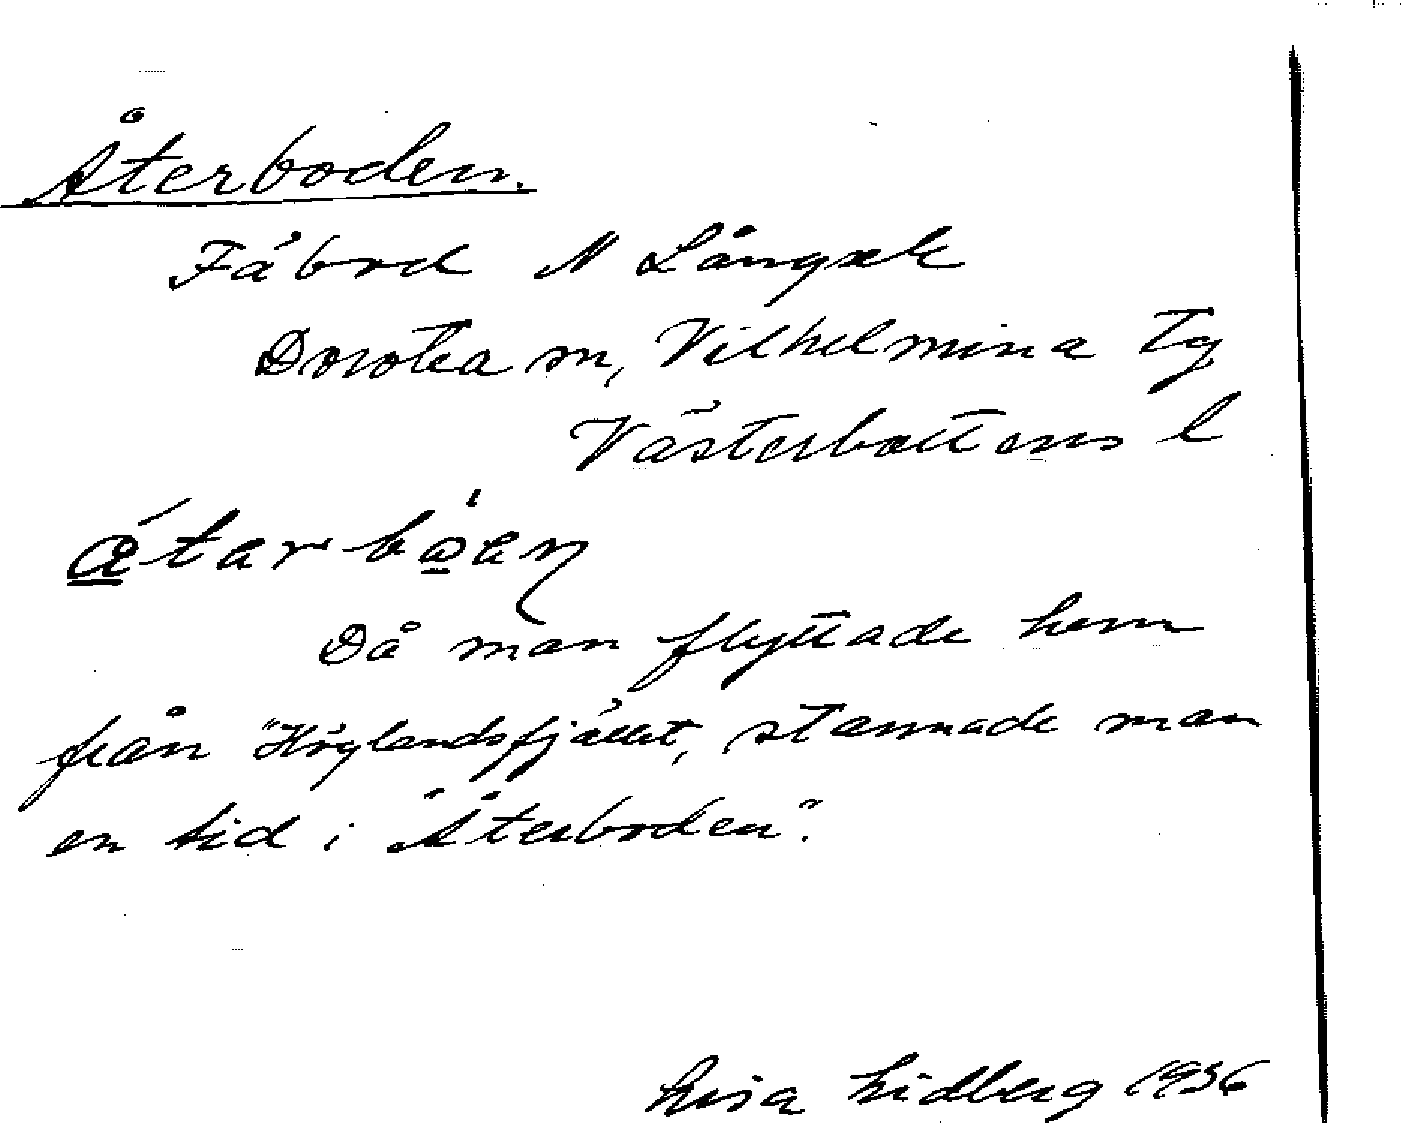 Återboden.
Fäbod N Långsele
Dorotea sn, Vilhelmina Tg
Västerbottens l
åtarbo̱an
Då man flyttade hem
från "Höglandsfjället, stannade man
en tid i "Återboden".
Lisa Lidberg 1936